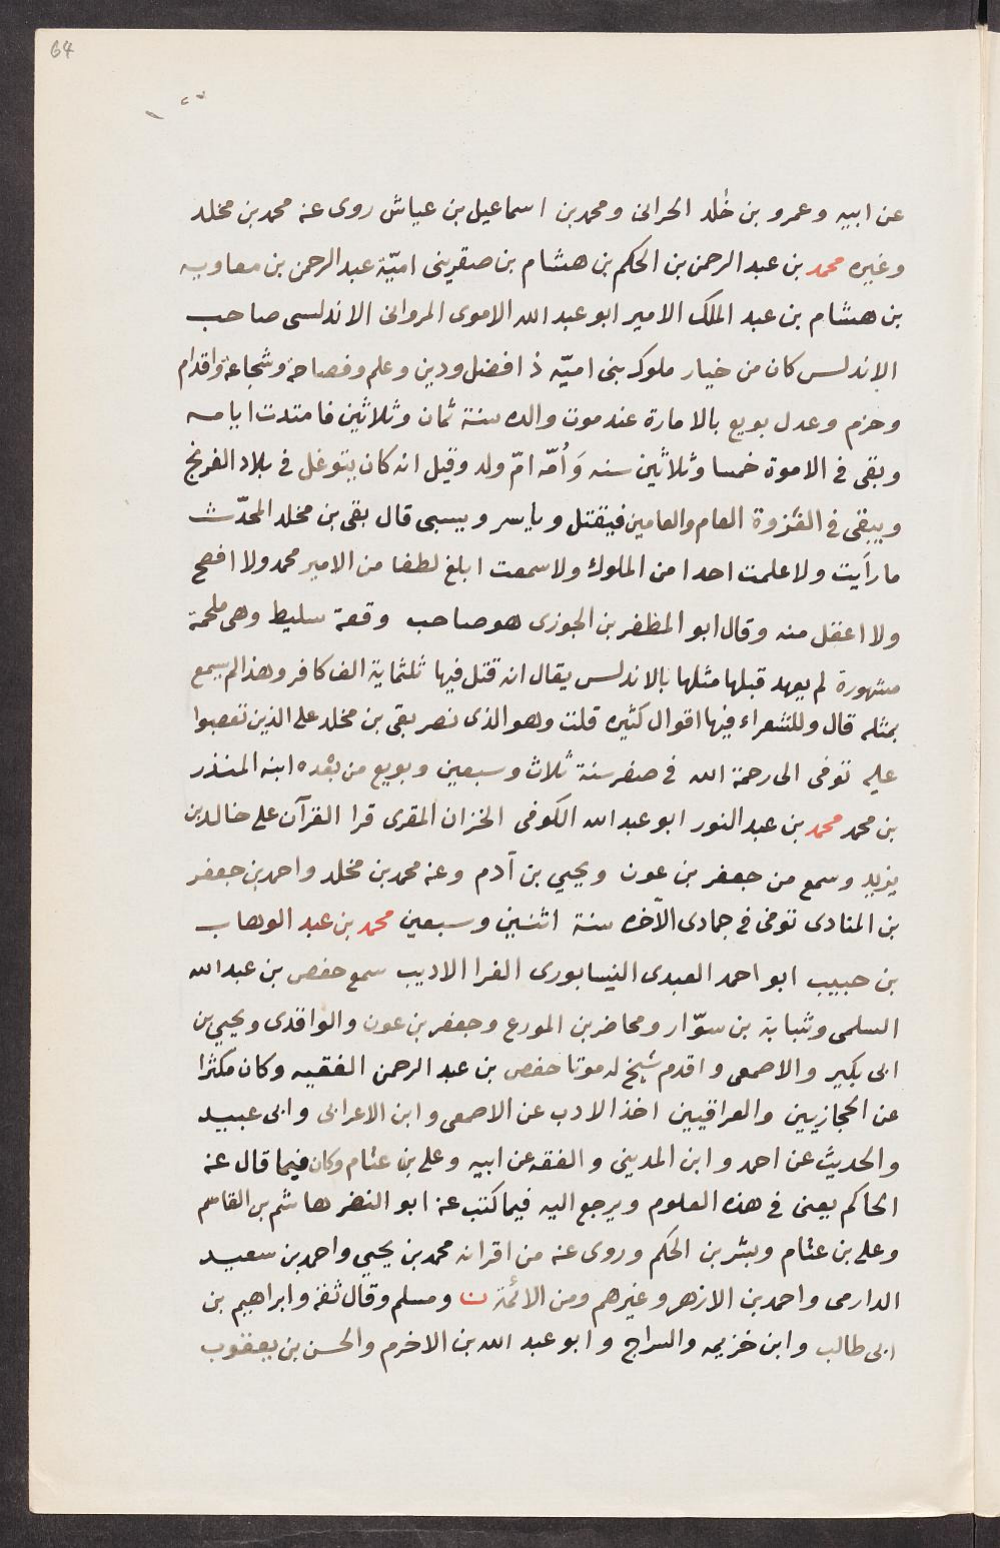 64
عن ابيه وعمرو بن خلد الحرانى ومحمد بن اسماعيل بن عياش روى عنه محمد بن مخلد
وغيره محمد بن عبد الرحمن بن الحكم بن هشام بن صقر بنى اميّة عبد الرحمن بن معاويه
بن هشام بن عبد الملك الامير ابو عبد الله الاموى المروانى الاندلسى صاحب
الاندلس كان من خيار ملوك بنى اميّه ذ افضل ودين وعلم وفصاحة وشجاعة واقدام
وحزم وعدل بويع بالامارة عند موت والده سنة ثمان وثلاثين فامتدت ايامه
وبقى فى الاموة خمسا وثلاثين سنه وَاُمّه امّ ولد وقيل انه كان يتوغل فى بلاد الفرنج
ويبقى فى الغزوة العام والعامين فيقتل وياسر ويسبى قال بقى بن مخلد المحدّث
ما رأيت ولا علمت احدا من الملوك ولا سمعت ابلغ لطفا من الامير محمد ولا افصح
ولا اعقل منه وقال ابو المظفر بن الجوزى هو صاحب وقعة سليط وهى ملحمة
مشهورة لم يعهد قبلها مثلها بالاندلس يقال انه قتل فيها ثلثماية الف كافر وهذا لم يسمع
بمثله قال وللشعراء فيها اقوال كثيره قلت وهو الذى نصر بقى بن مخلد على الذين تعصبوا
عليه توفى الى رحمة الله فى صفر سنة ثلاث وسبعين وبويع من بعده ابنه المنذر
بن محمد محمد بن عبد النور ابو عبد الله الكوفى الخزان المقرى قرا القرآن على خالد بن
يزيد وسمع من جعفر بن عون ويحيي بن آدم وعنه محمد بن مخلد واحمد بن جعفر
بن المنادى توفى فى جمادى الآخره سنة اثنين وسبعين محمد بن عبد الوهاب
بن حبيب ابو احمد العبدى النيسابورى الفرا الاديب سمع حفص بن عبد الله
السلمى وشبابة بن سوّار ومحاضر بن المورع وجعفر بن عون والواقدى ويحيي بن
ابى بكير والاصمعى واقدم شيخ له موتا حفص بن عبد الرحمن الفقيه وكان مكثرا
عن الحجازيين والعراقيين اخذ الادب عن الاصمعى وابن الاعرابى وابى عبيد
والحديث عن احمد وابن المدينى والفقه عن ابيه وعلى بن عثام وكان فيما قال عنه
الحاكم يعنى فى هذه العلوم ويرجع اليه فيما كتب عنه ابو النضر هاشم بن القاسم
وعلى بن عثام وبشر بن الحكم وروى عنه من اقرانه محمد بن يحيي واحمد بن سعيد
الدارمى واحمد بن الازهر وغيرهم ومن الائمة ن ومسلم وقال ثقة وابراهيم بن
ابى طالب وابن خزيمه والسراج وابو عبد الله بن الاخرم والحسن بن يعقوب